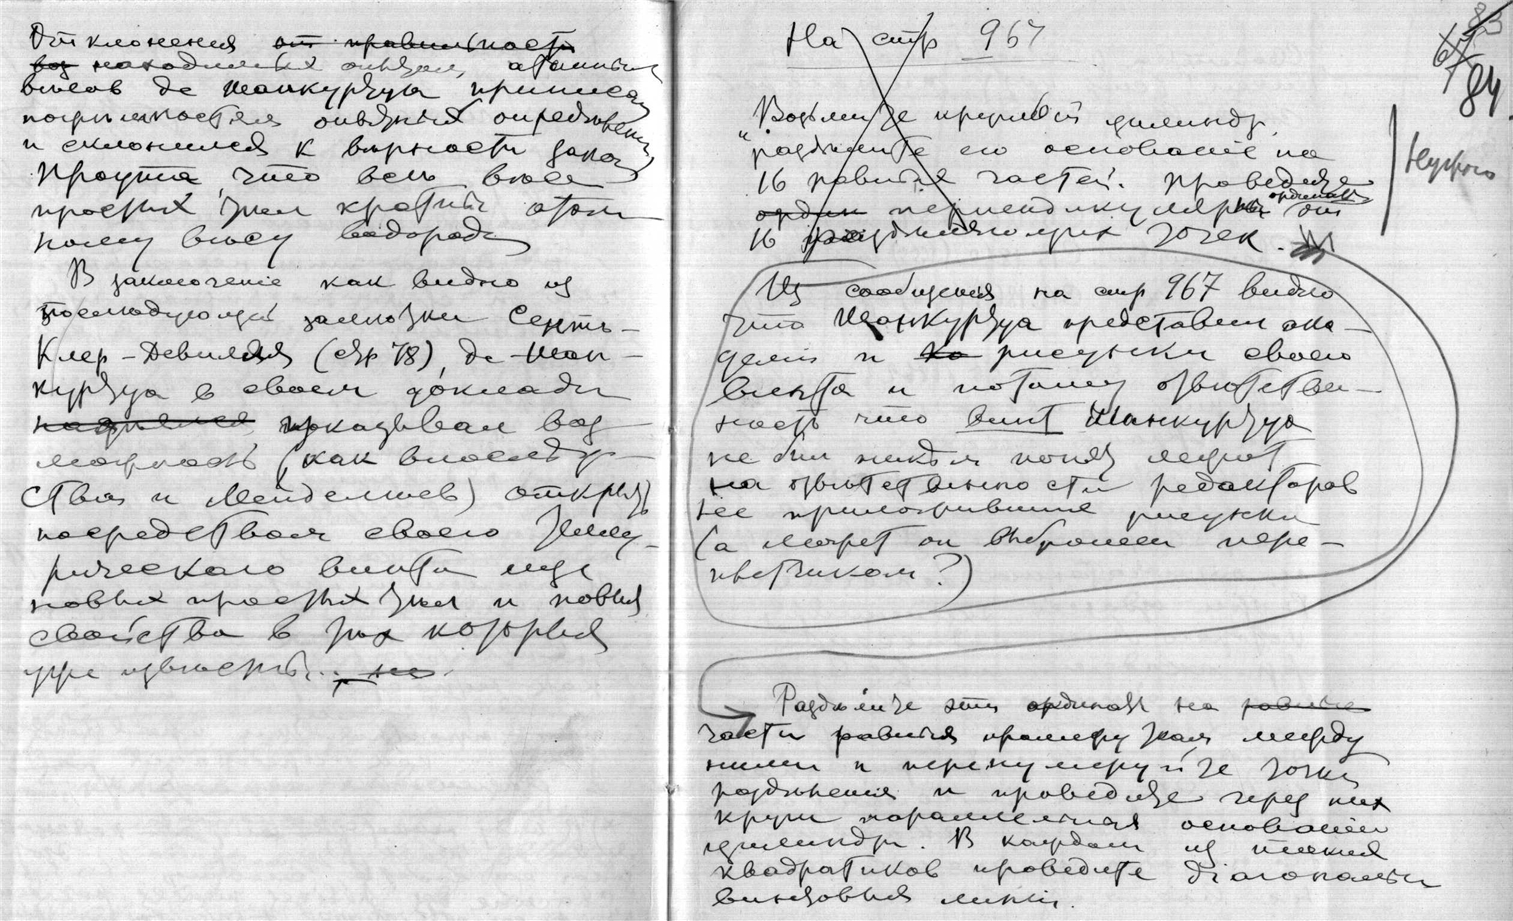 Отклонения от правильности
воз находимых опытом, атомных
весов де Шанкуртуа приписал
погрешностям опытных определений
и склонился к верности закона
Проута, что весь весе
простых тел кратны атом
ному весу водорода
В заключение как видно из
последующей заметки Сентъ-
Клер-Девилля (стр 78), де-Шан-
куртуа в своем докладе
показывал воз
можность (как впоследу-
ствии и Менделеев) открыть
посредством своего Теллу-
рического винта еще
новых простых тел и новыя
свойства в тех которыя
уже известны.. не
На стр 967
83
67
84
Возьмите круглый цилиндр,
"разделите его основание на
16 равных частей. Проведите
ордин перпендикулярныя ординаты от
16 разделяющих точек.
Нужно
Из сообщения на стр 967 видно
что Шанкуртуа представил ака-
демии и ко рисунки своего
винта и потому ответствен-
ность что винт Шанкуртуа
не был никем понят лежит
на ответственности редакторов
не приложивших рисунки
(а может он выброшен пере-
плетчиком?)
Разделите эти ординаты на равныя
части равныя промежуткам между
ними и перенумеруйте точки
разделения и проведите через них
круги параллельныя основанию
цилиндра. В каждом из таких
квадратиков проведите диагональны
винтовыя линии.